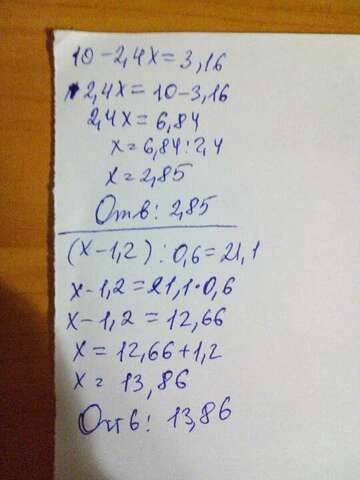 10-2,4x=3,16
2,4x=10-3,16
2,4x=6,84
x=6,84:2,4
x=2,85
Отв: 2,85
(x-1,2):0,6=21,1
x-1,2=21,1·0,6
x-1,2=12,66
x=12,66+1,2
x=13,86
Отв: 13,86